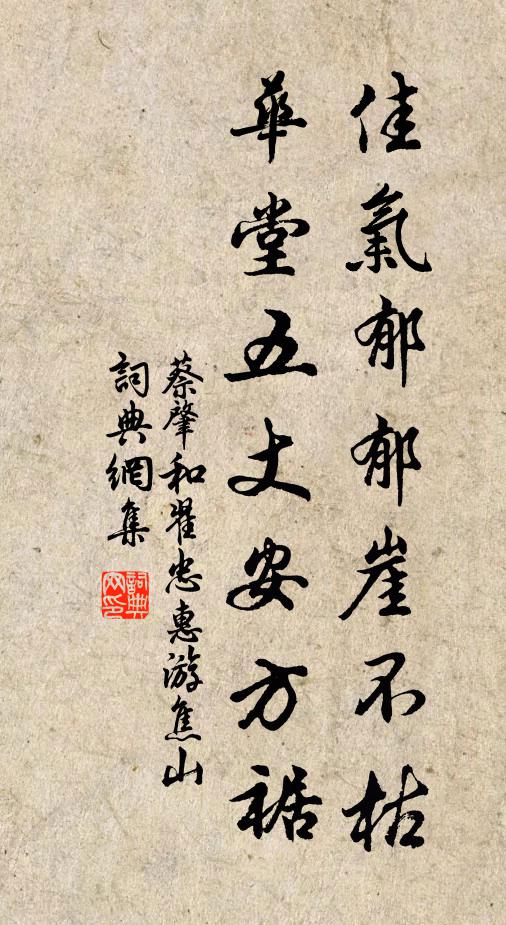 佳氣郁郁崖不枯
華堂五丈安方裾
蔡肇和翟忠惠游焦山
詞典網集
詞典
网印